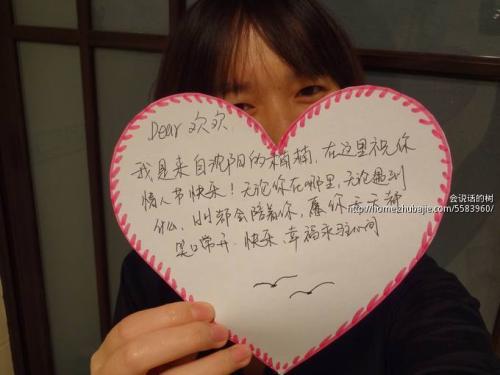 Dear 欢欢
我是来自沈阳的楠楠，在这里祝你
情人节快乐！无论你在哪里，无论遇到
什么，山山都会陪着你，愿你天天都
笑口常开. 快乐、幸福永驻心间
会说话的树
http://home.zhubajie.com/5583960/